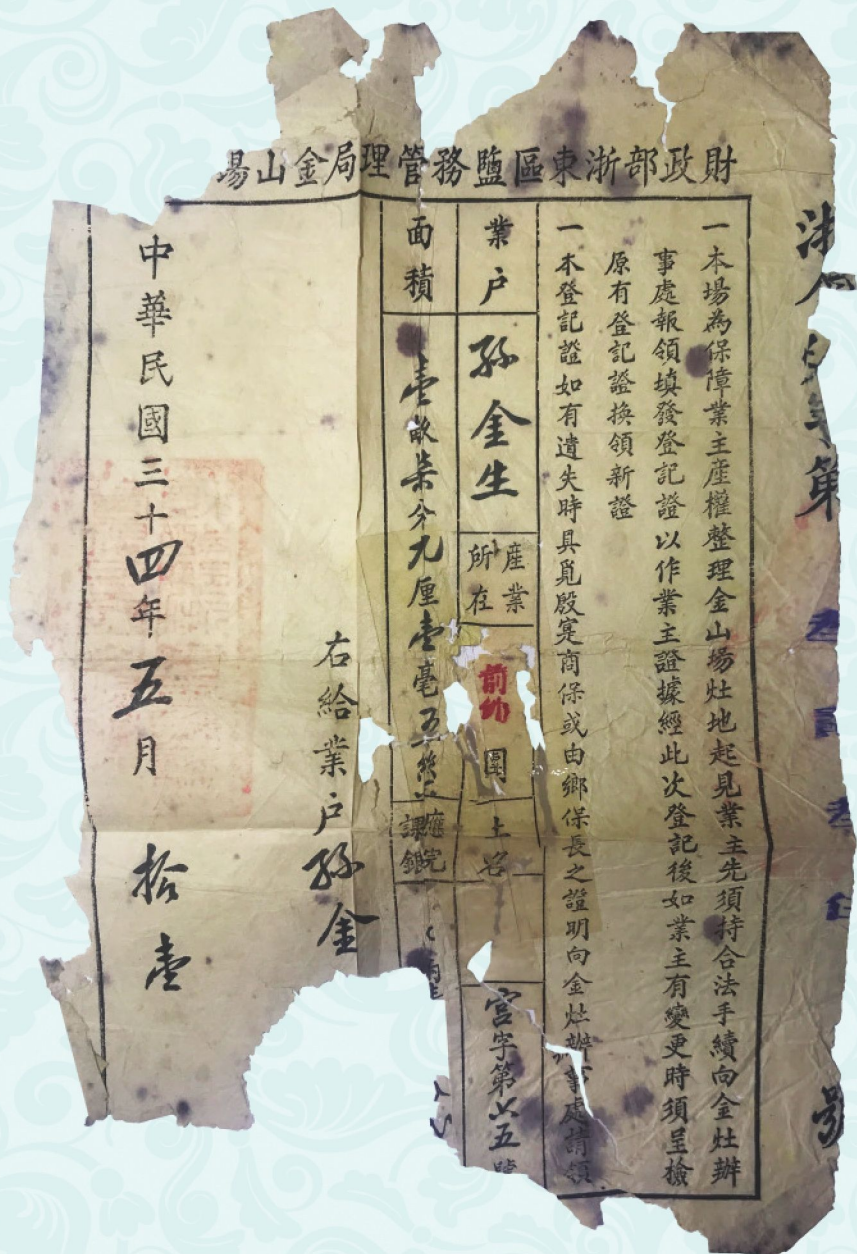 財政部浙東區鹽務管理局金山場
第
號
一本場為保障業主産權整理金山場灶地起見業主先須持合法手續向金灶辦
事處報領填發登記證以作業主證據經此次登記後如業主有變更時須呈檢
原有登記證換領新證
一本登記證如有遺失時具覓殷寔商保或由鄉保長之證明向金灶辦事處請領
業户
孫金生
産業
所在
前
團
土名
宫字第六五號
面積
壹畝柒分九厘壹毫五絲
應完
課銀
右給業户孫金
中華民國三十四年五月拾壹